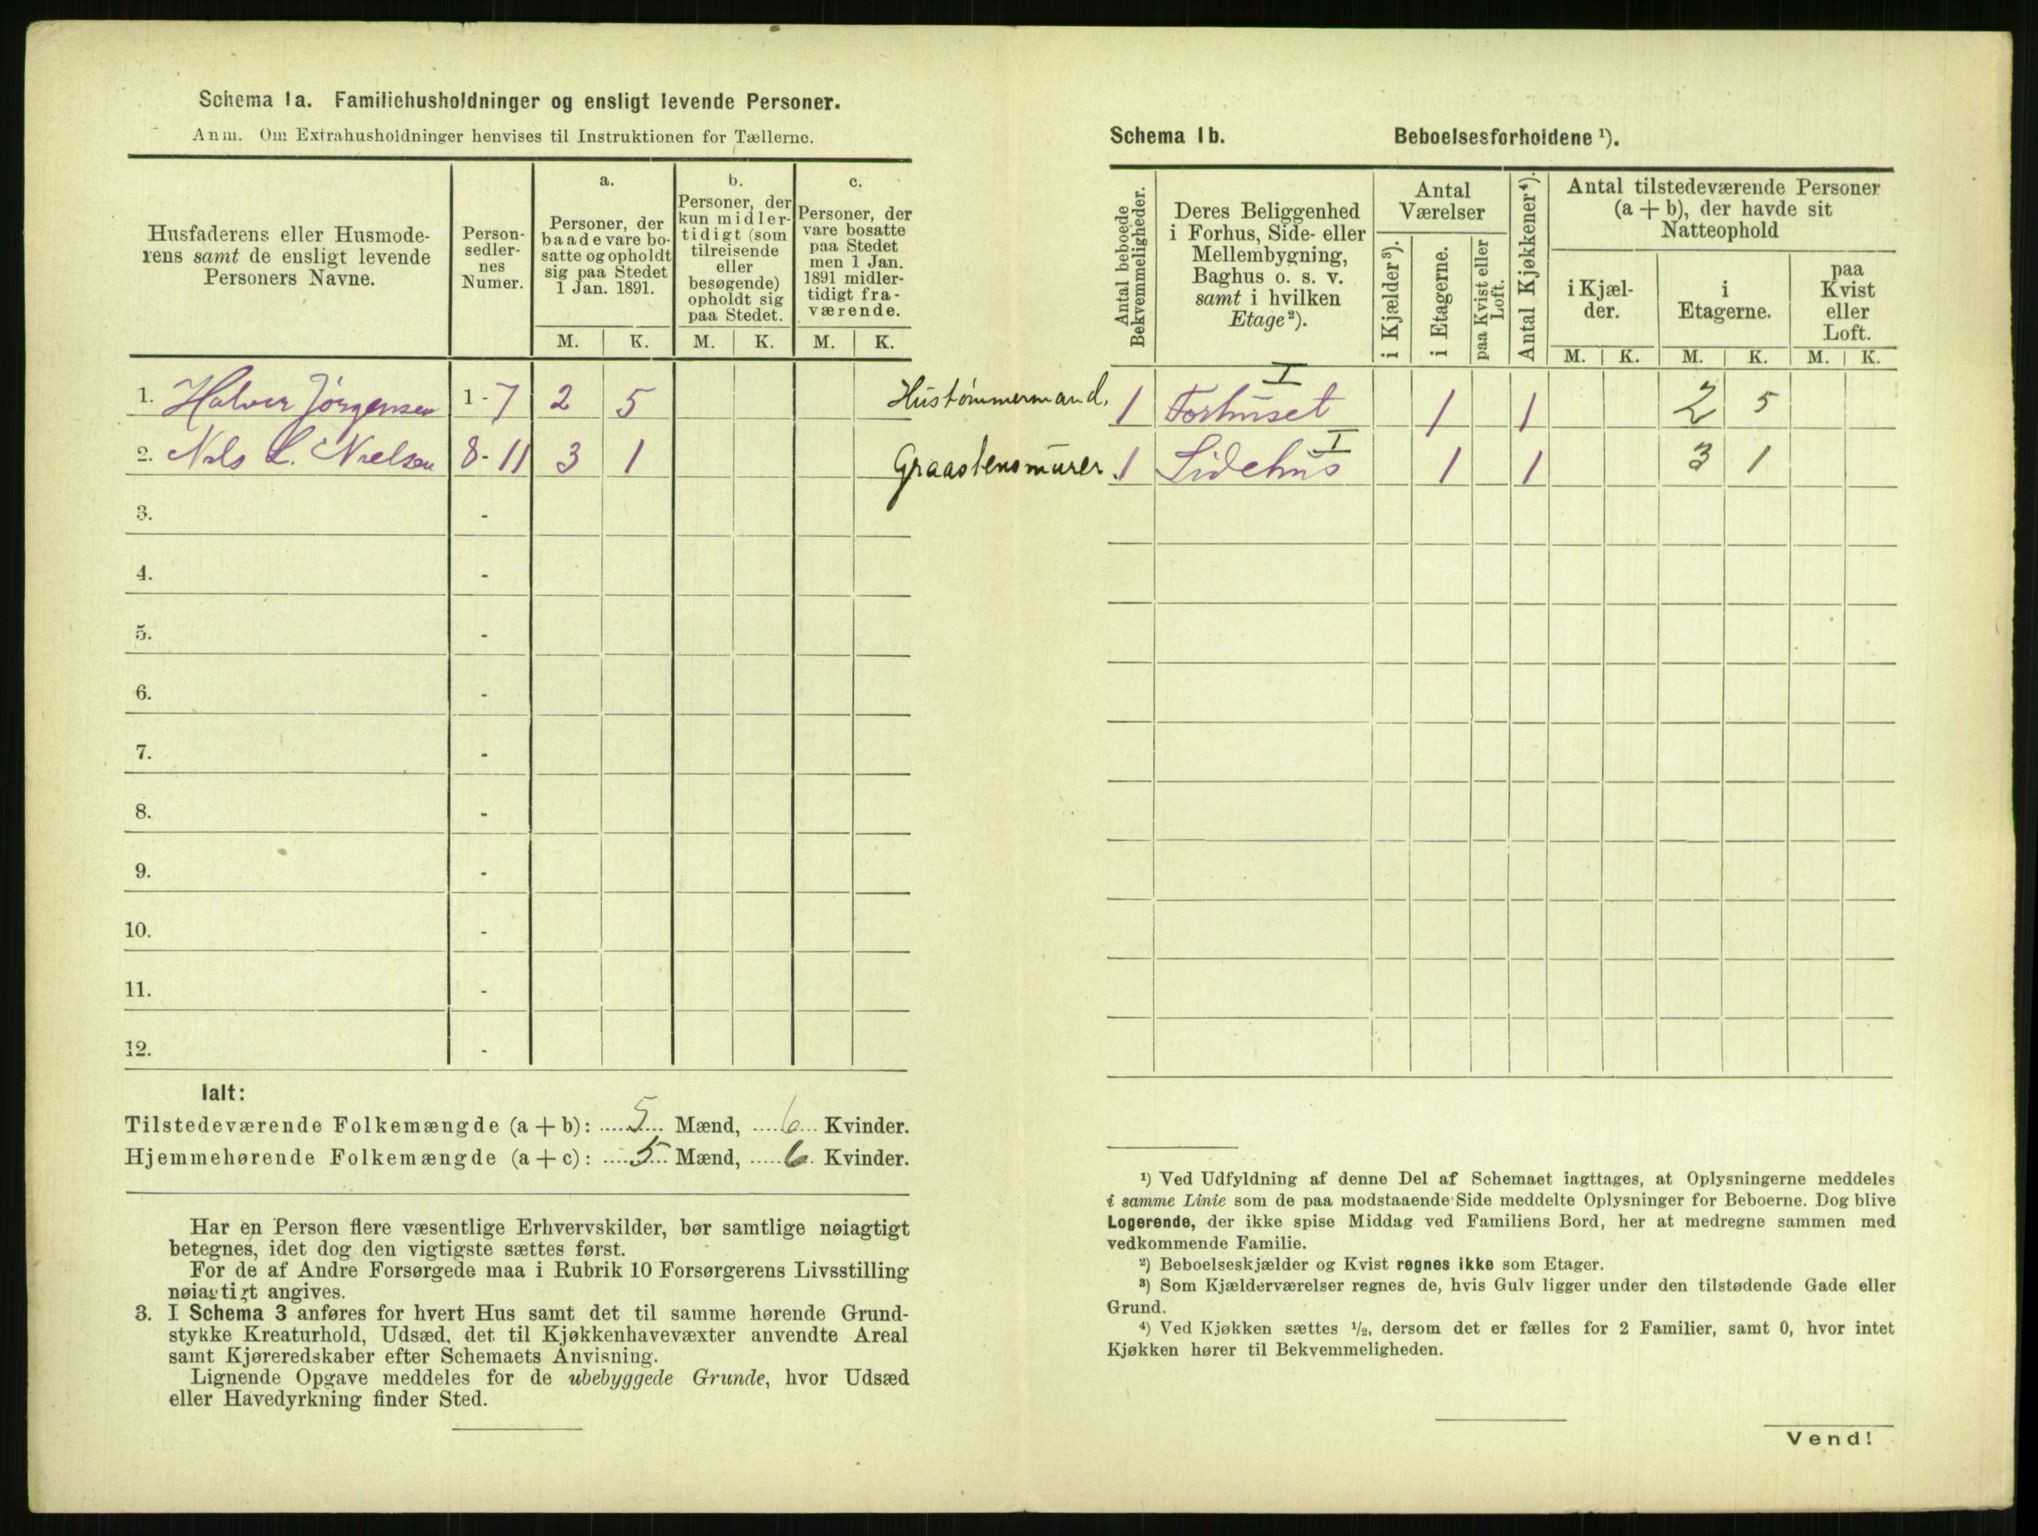 Schema 1a. Familiehusholdninger og ensligt levende Personer.
Anm. Om Extrahusholdninger henvises til Instruktionen for Tællerne.
Husfaderens eller Husmode-
rens samt de ensligt levende
Personers Navne.
Person-
sedler-
nes
Numer.
a.
Personer, der
baade vare bo-
satte og opholdt
sig paa Stedet
1 Jan. 1891.
b.
Personer, der
kun midler-
tidigt (som
tilreisende
eller
besøgende)
opholdt sig
paa Stedet.
c.
Personer, der
vare bosatte
paa Stedet
men 1 Jan.
1891 midler-
tidigt fra-
værende.
M. K. M. K. M. K.
1. Halvor Jørgensen 1-7 2 5 Hustømmermand.
2. Nils L. Nielsen 8-11 3 1 Graastensmurer.
3. -
4. -
5. -
6. -
7. -
8. -
9. -
10. -
11. -
12. -
Ialt:
Tilstedeværende Folkemængde (a + b): 5 Mænd, 6 Kvinder.
Hjemmehørende Folkemængde (a + c): 5 Mænd, 6 Kvinder.
Har en Person flere væsentlige Erhvervskilder, bør samtlige nøiagtigt
betegnes, idet dog den vigtigste sættes først.
For de af Andre Forsørgede maa i Rubrik 10 Forsørgerens Livsstilling
nøiagtigt angives.
3. I Schema 3 anføres for hvert Hus samt det til samme hørende Grund-
stykke Kreaturhold, Udsæd, det til Kjøkkenhavevæxter anvendte Areal
samt Kjøreredskaber efter Schemaets Anvisning.
Lignende Opgave meddeles for de ubebyggede Grunde, hvor Udsæd
eller Havedyrkning finder Sted.
Schema 1b. Beboelsesforholdene ¹).
Antal beboede
Bekvemmeligheder.
Deres Beliggenhed
i Forhus, Side- eller
Mellembygning,
Baghus o. s. v.
samt i hvilken
Etage ²).
Antal
Værelser
i Kjælder ³).
i Etagerne.
paa Kvist eller
Loft.
Antal Kjøkkener ⁴).
Antal tilstedeværende Personer
(a + b), der havde sit
Natteophold
i Kjæl-
der.
i
Etagerne.
paa
Kvist
eller
Loft.
M. K. M. K. M. K.
1 Forhuset I 1 1 2 5
1 Sidehus I 1 1 3 1
¹) Ved Udfyldning af denne Del af Schemaet iagttages, at Oplysningerne meddeles
i samme Linie som de paa modstaaende Side meddelte Oplysninger for Beboerne. Dog blive
Logerende, der ikke spise Middag ved Familiens Bord, her at medregne sammen med
vedkommende Familie.
²) Beboelseskjælder og Kvist regnes ikke som Etager.
³) Som Kjælderværelser regnes de, hvis Gulv ligger under den tilstødende Gade eller
Grund.
⁴) Ved Kjøkken sættes ½, dersom det er fælles for 2 Familier, samt 0, hvor intet
Kjøkken hører til Bekvemmeligheden.
Vend!